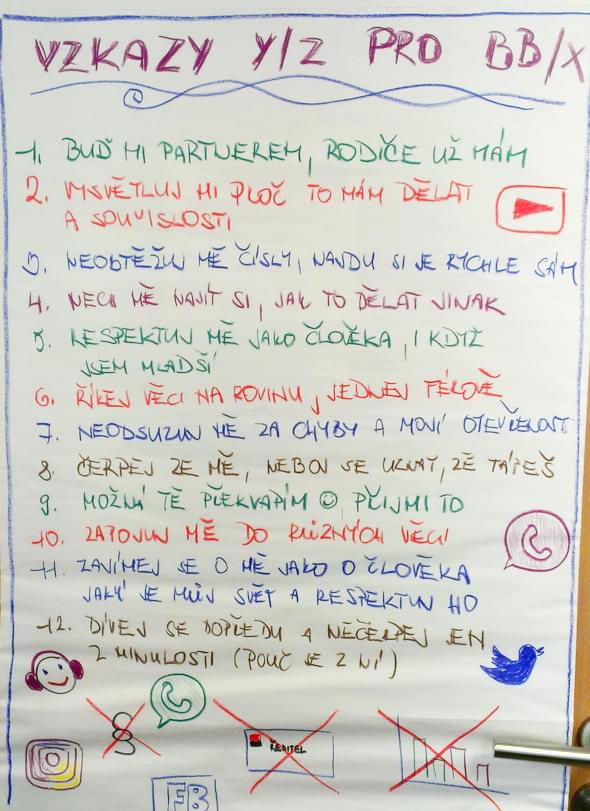 VZKAZY Y/Z PRO BB/X
1. BUĎ MI PARTNEREM, RODIČE UŽ MÁM
2. VYSVĚTLUJ MI PROČ TO MÁM DĚLAT
A SOUVISLOSTI
3. NEOBTĚŽUJ MĚ ČÍSLY, NAJDU SI JE RYCHLE SÁM
4. NECH MĚ NAJÍT SI, JAK TO DĚLAT JINAK
5. RESPEKTUJ MĚ JAKO ČLOVĚKA, I KDYŽ
JSEM MLADŠÍ
6. ŘÍKEJ VĚCI NA ROVINU, JEDNEJ FÉROVĚ
7. NEODSUZUJ MĚ ZA CHYBY A MOJÍ OTEVŘENOST
8. ČERPEJ ZE MĚ, NEBOJ SE UZNAT, ŽE TÁPEŠ
9. MOŽNÁ TĚ PŘEKVAPÍM ☺, PŘIJMI TO
10. ZAPOJUJ MĚ DO RŮZNÝCH VĚCÍ
11. ZAJÍMEJ SE O MĚ JAKO O ČLOVĚKA
JAKÝ JE MŮJ SVĚT A RESPEKTUJ HO
12. DÍVEJ SE DOPŘEDU A NEČERPEJ JEN
Z MINULOSTI (POUČ SE Z NÍ)
§
ŘEDITEL
FB